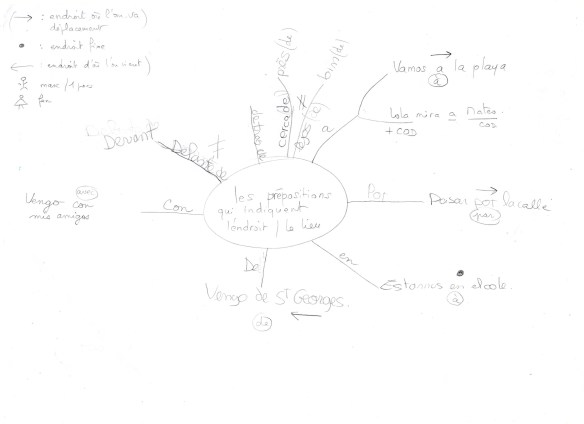 (→ : endroit où l'on va)
déplacement
• : endroit fixe
← : endroit d'où l'on vient)
masc / 1 pers
fem
près (de)
loin (de)
cerca (de)
a
Vamos a la playa
à
Lola mira a Mateo.
+ COD
COD
Devant
Delante de
≠
les prépositions
qui indiquent
l'endroit / le lieu
Por
Pasar por la calle
par
Con
Vengo con
mis amigos
en
Estamos en el cole.
à
De
Vengo de St Georges.
de